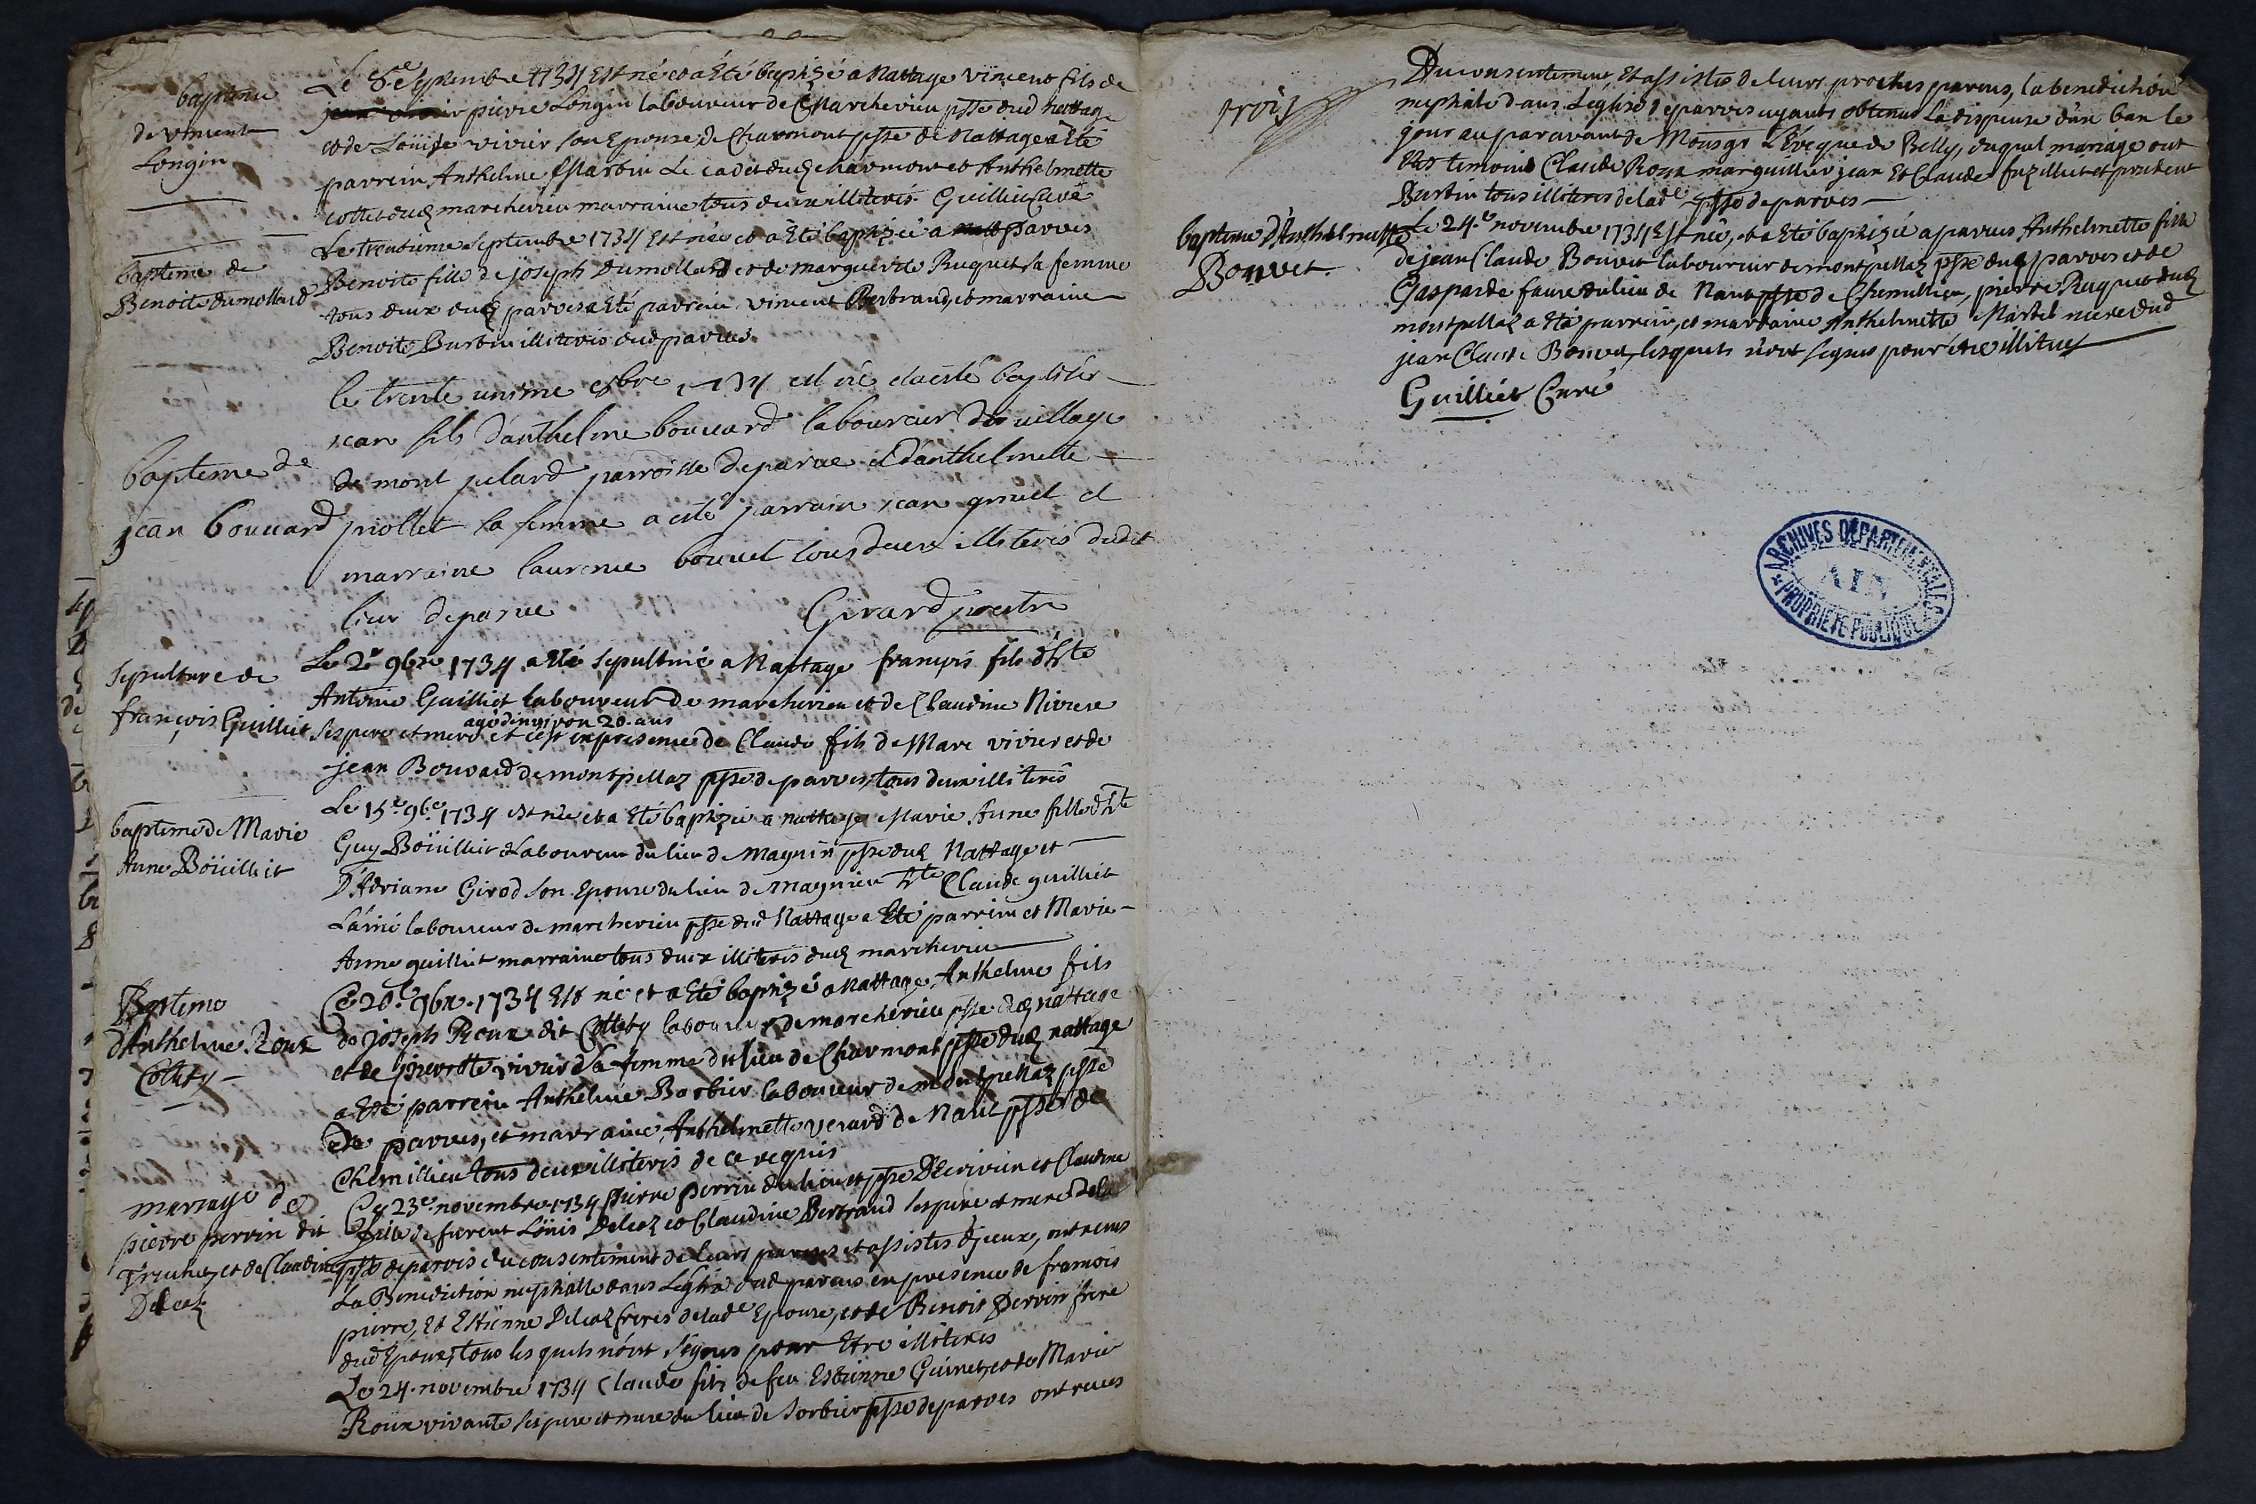 bapteme
de vincent
Longin
Le 8e Septembre 1734 Est né et a Eté baptizé a Nattage vincent fils de
pierre Longin laboureur de Marcherieu psse dud nattage
et de Loüise vivier son Epouse de Charmont psse de Nattage a Eté
parrein Anthelme Martin Le cadet dud charmont et Anthelmette
collet dud marcherieu marraine tous deux illiteris. Guilliet Curé
bapteme de
Benoite Dumollard
Le trentieme Septembre 1734 Est née et a Eté baptizée a parves
Benoite fille de joseph Dumollard et de marguerite Ruquet sa femme
tous deux dud parves a Eté parrein vincent Bertrand, et marraine
Benoite Burtin illiteris dud parves
bapteme de
jean bouvard
le trente unsme 8bre 1734 est né et a esté baptisé
jean fils d'anthelme bouvard laboureur du village
de mont pelard parroisse de parve et d'anthelmette
piollet sa femme a esté parrain jean gruel et
marraine laurence bouvet tous deux illiteris dudit
lieu de parve Girard prestre
Sepulture de
françois Guilliet
Le 2e 9bre 1734 a Eté sepulturé a Nattage françois fils d'hte
Antoine Guilliet laboureur de marcherieu et de Claudine Riviere
agé d'environ 20. ans
ses pere et mere et c'est en presence de Claude fils de Marc vivier et de
jean Bouvard de montpellaz psse de parves, tous deux illiteris
bapteme de Marie
Anne Boüilliet
Le 15e 9be 1734 est née et a Eté baptizée a nattage Marie Anne fille d'hte
Guy Boüilliet Laboureur du lieu de Magnin psse dud Nattage et
D'Adriane Girod son Epouse du lieu de magnieu hte Claude guilliet
L'ainé laboureur de marcherieu psse dud Nattage a Eté parrein et Marie
Anne guilliet marraine tous deux illiteris dud marcherieu
Bapteme
d'Anthelme Roux
Collety
Ce 20e 9bre 1734 Est né et a Eté baptizé a Nattage, Anthelme fils
de joseph Roux dit Collety laboureur de marcherieu psse dud nattage
et de pierrotte vivier sa femme du lieu de Charmont psse dud nattage
a Eté parrein Anthelme Barbier laboureur de montpellaz psse
de parves, et marraine, Anthelmette verard de Nant psse de
Chemillieu tous deux illiteris de ce requis
mariage de
pierre perrin dit
et de Claudine
Delcoz
Ce 23e novembre 1734 pierre perrin du lieu et psse D'Ecrivieu et Claudine
fille de furent Loüis Delcoz et Claudine Bertrand ses pere et mere de la
psse de parves du consentement de leurs parens et assistés d'jceux, ont receus
La Benediction nuptialle dans L'eglise dud parves en presence de francois
pierre, et Estienne Delcoz freres de lade Epouse, et de Benoit Perrin frere
dud Epoux, tous lesquels n'ont signés pour Etre illiteris
Le 24. novembre 1734 Claude fils de feu Estienne Guinet, et de Marie
Roüx vivante ses pere et mere du lieu de Sorbier psse de parves ont receus
trois
Du consentement et assistés de leurs proches parens, la benediction
nuptiale dans L'eglise de parves ayants obtenus La dispense d'un ban le
jour auparavant de Monsgr L'Eveque de Belly, duquel mariage ont
Etés temoins Claude Roux marguillier jean Et Claude fuzilliet et prudent
Burtin tous illiteris de lade psse de parves
bapteme d'Anthelmette
Bouvet.
Le 24e novembre 1734 Est née, et a Eté baptizée a parves Anthelmette fille
de jean Claude Bouvet laboureur de montpellaz psse dud parves et de
Gasparde faure du lieu de Nant psse de Chemillieu, pierre Ruquet dud
montpellaz a Eté parrein, et marraine Anthelmette Martel niece dud
jean Claude Bouvet, lesquels n'ont signés pour être illiteres
Guilliet Curé
ARCHIVES DÉPARTEMENTALES
AIN
PROPRIÉTÉ PUBLIQUE